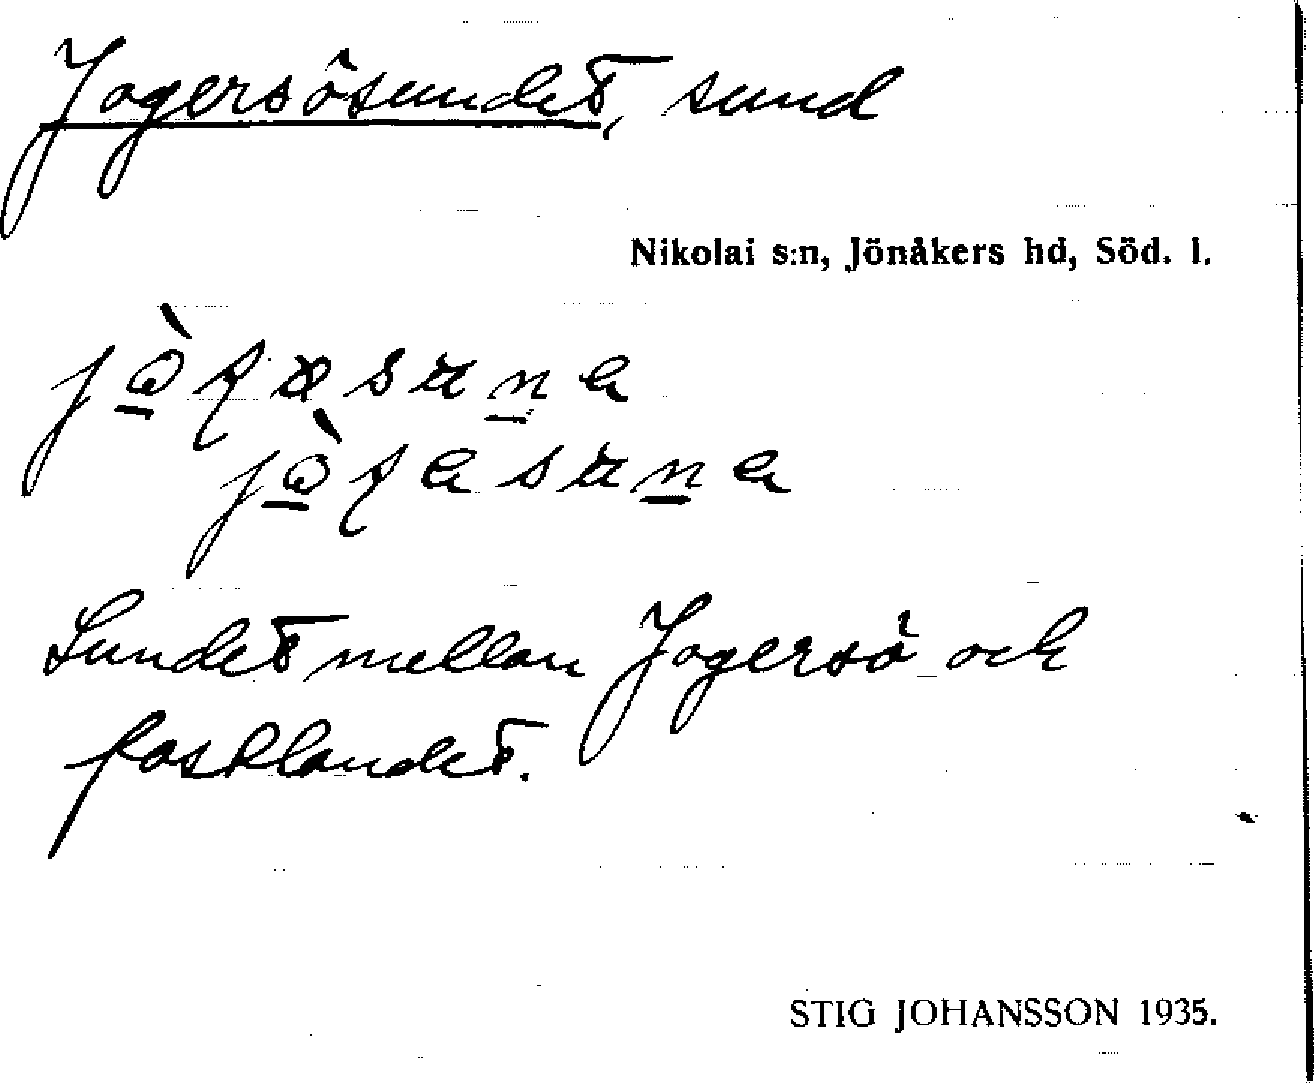 Jogersösundet, sund
Nikolai s:n, Jönåkers hd, Söd. l.
Sundet mellan Jogersö och
fastlandet.
STIG JOHANSSON 1935.